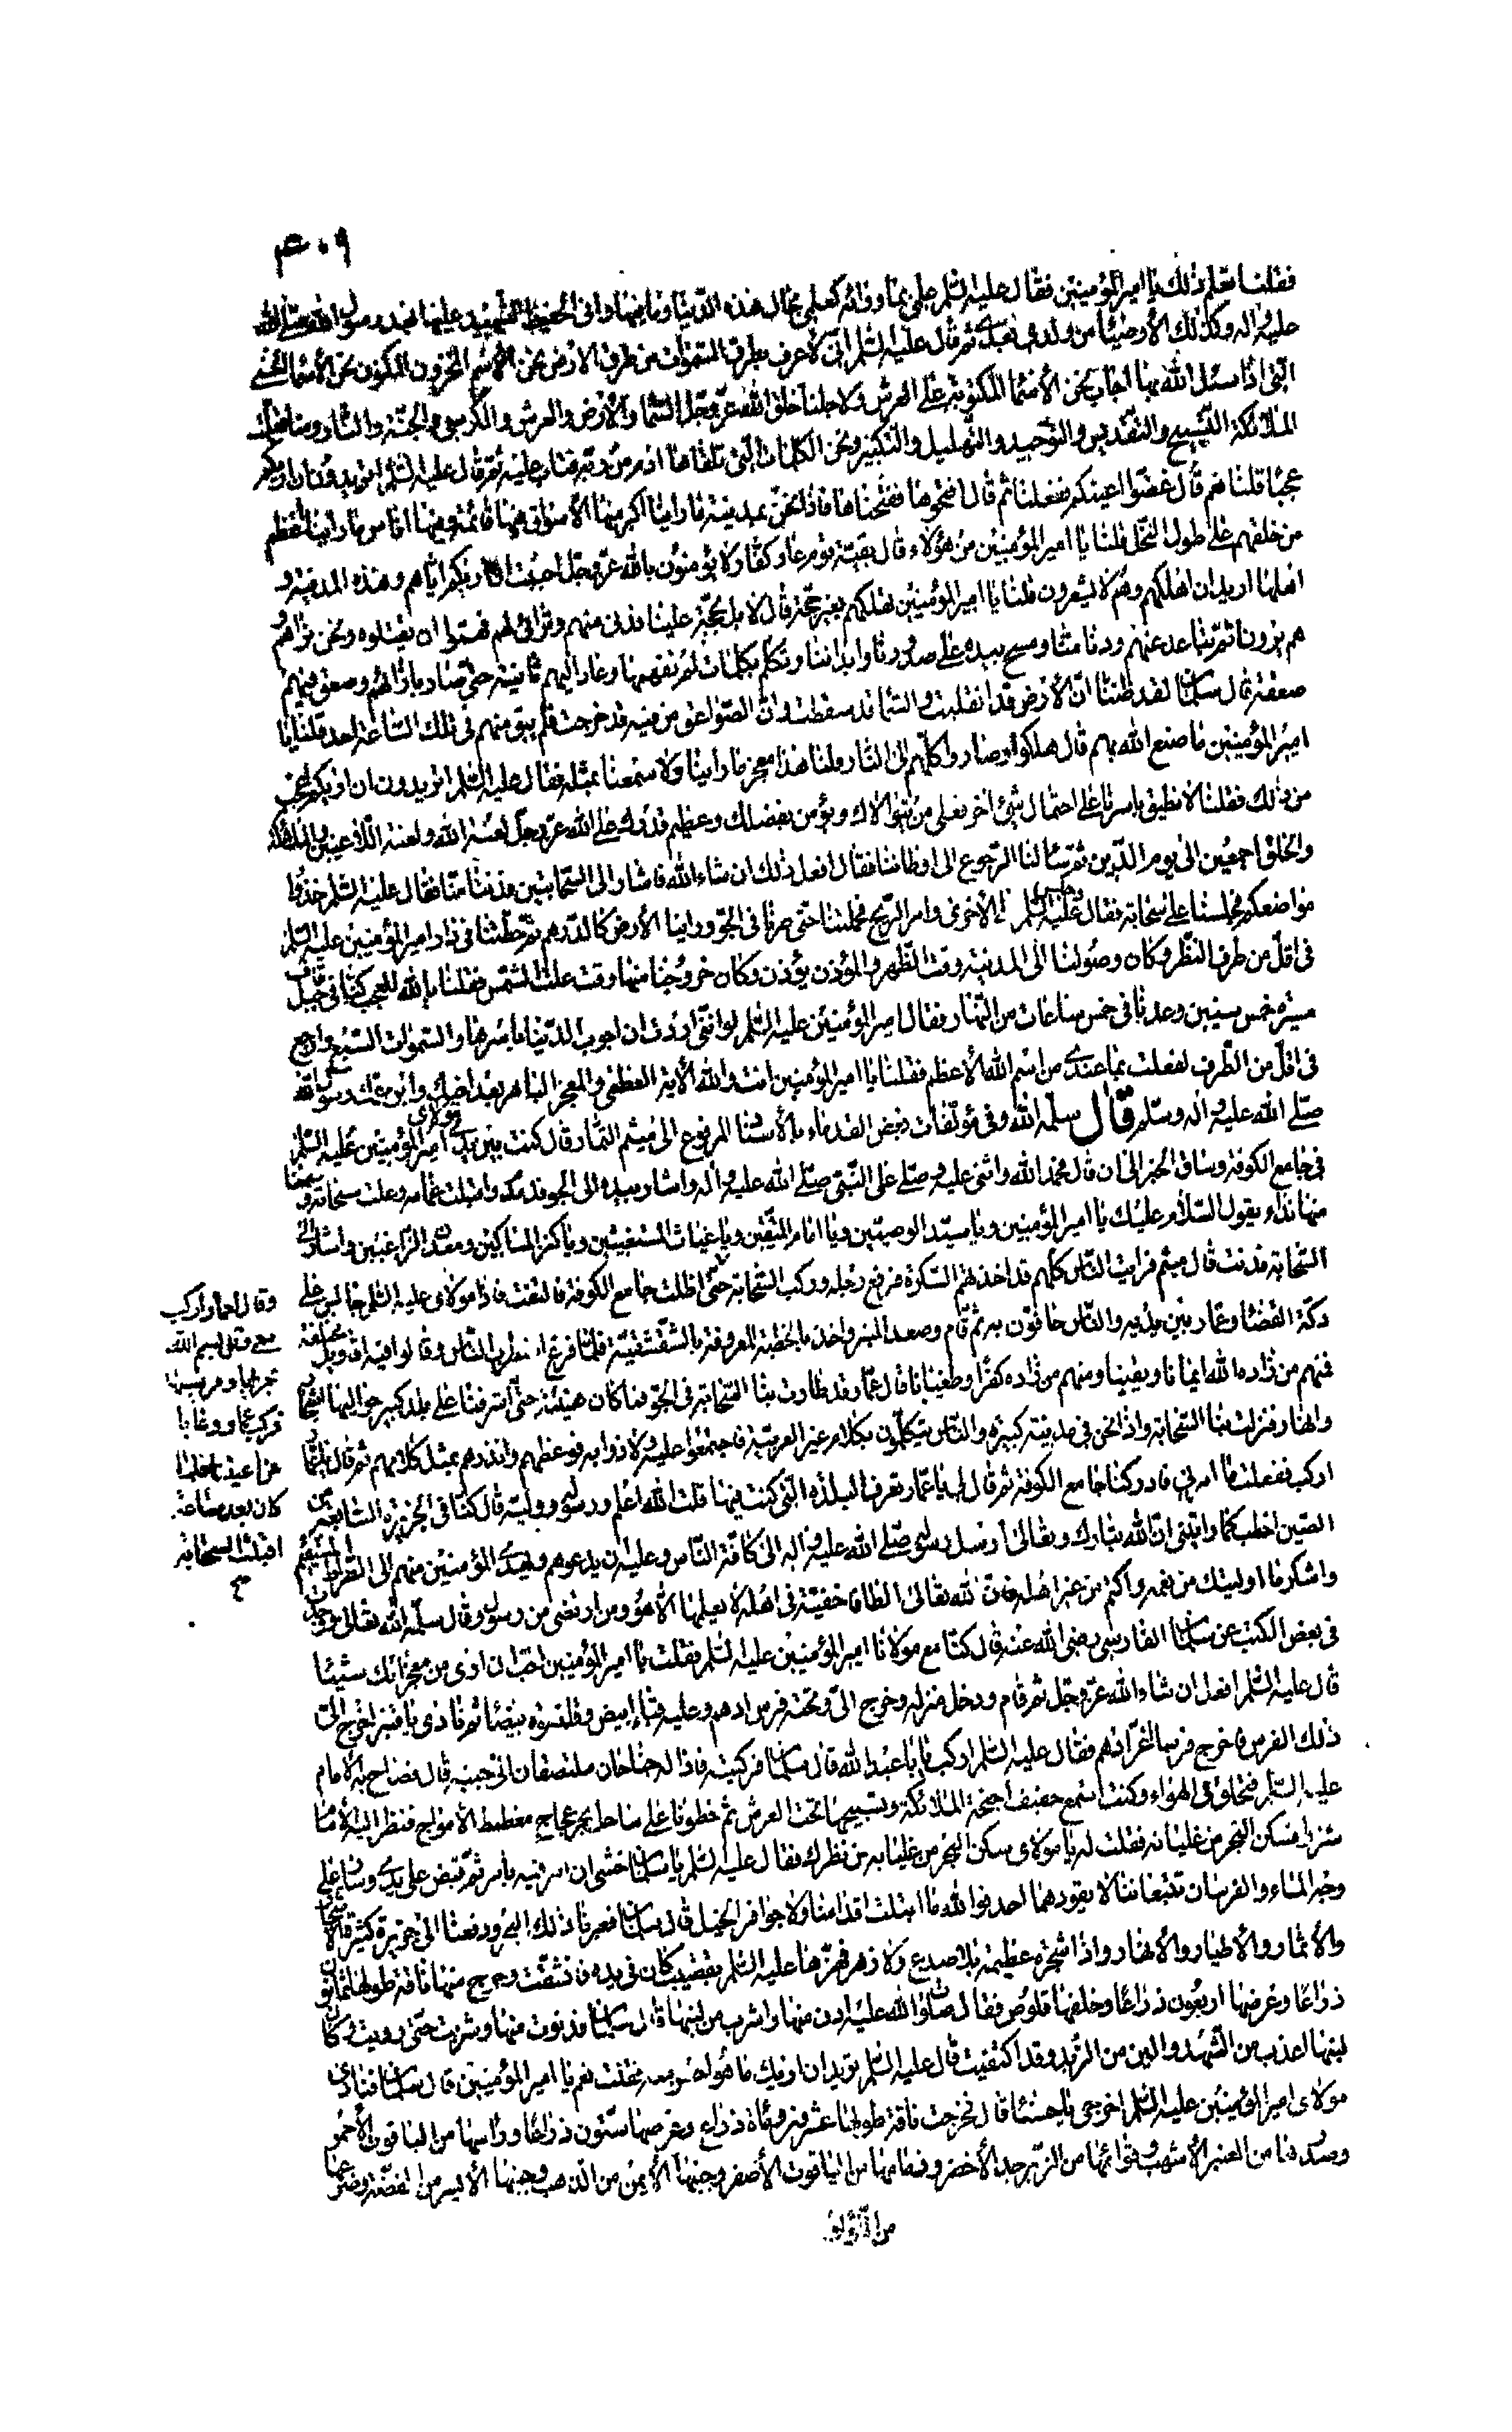 ٤٠٩
فقلنا تعلم ذلك يا امير المؤمنين فقال عليه السلم علمي بما وراءه كعلمي بحال هذه الدنيا وما فيها واني الحفيظ الشهيد عليها بعد رسول الله صلى الله
عليه اله وكذلك الأوصياء من ولدي بعدي ثم قال عليه السلم اني لأعرف بطرق السموات من طرق الارض نحن الاسم المخزون المكنون نحن الأسماء الحسنى
التي اذا سئل الله بها اجاب نحن الأسماء المكتوبة على العرش ولاجلنا خلق الله عز وجل السماء والأرض والعرش والكرسي والجنة والنار ومنا تعلمت
الملائكة التسبيح والتقديس والتوحيد والتهليل والتكبير ونحن الكلمات التي تلقاها ادم من ربه فتاب عليه ثم قال عليه السلم اتريدون ان اريكم
عجبا قلنا نعم قال غضوا اعينكم ففعلنا ثم قال افتحوها ففتحناها فاذا نحن بمدينة ما راينا اكبر منها الأسواق فيها قائمة وفيها اناس ما راينا اعظم
من خلقهم على طول النخل قلنا يا امير المؤمنين من هؤلاء قال بقية قوم عاد كفار لا يؤمنون بالله عز وجل احببت ان اريكم اياهم وهذه المدينة و
اهلها اريد ان اهلكهم وهم لا يشعرون قلنا يا امير المؤمنين تهلكهم بغير حجة قال لا بل بحجة علينا فدنى منهم وترائى لهم فهموا ان يقتلوه ونحن نراهم و
هم يرونا ثم تباعد عنهم ودنا منا ومسح بيده على صدورنا وابداننا وتكلم بكلمات لم نفهمها وعاد اليهم ثانية حتى صار بازائهم وصعق فيهم
صعقة قال سلمان لقد ظننا ان الأرض قد انقلبت والسماء قد سقطت وان الصواعق من فيه قد خرجت فلم يبق منهم في تلك الساعة احد قلنا يا
امير المؤمنين ما صنع الله بهم قال هلكوا وصاروا كلهم الى النار قلنا هذا معجز ما راينا ولا سمعنا بمثله فقال عليه السلم اتريدون ان اريكم اعجب
من ذلك فقلنا لا نطيق باسرنا على احتمال شيء اخر فعلى من لا يتوالاك ويؤمن بفضلك وعظيم قدرك على الله عز وجل لعنة الله ولعنة اللاعنين والملائكة
والخلق اجمعين الى يوم الدين ثم سالنا الرجوع الى اوطاننا فقال افعل ذلك ان شاء الله فاشار الى السحابتين فدنتا منا فقال عليه السلم خذوا
مواضعكم فجلسنا على سحابة وجلس عليه السلم على الأخرى وامر الريح فحملتنا حتى صرنا في الجو وراينا الأرض كالدرهم ثم حطتنا في دار امير المؤمنين عليه السلم
في اقل من طرف النظر وكان وصولنا الى المدينة وقت الظهر والمؤذن يؤذن وكان خروجنا منها وقت علت الشمس فقلنا بالله العجب كنا في جبل قاف
مسيرة خمس سنين وعدنا في خمس ساعات من النهار فقال امير المؤمنين عليه السلم لو انني اردت ان اجوب الدنيا باسرها والسموات السبع وارجع
في اقل من الطرف لفعلت بما عندي من اسم الله الأعظم فقلنا يا امير المؤمنين انت والله الأية العظمى والمعجز الباهر بعد اخيك وابن عمك رسول الله
صلى الله عليه واله وسلم قال سلمه الله وفي مؤلفات بعض القدماء بالأسناد المرفوع الى ميثم التمار قال كنت بين يدي مولاي امير المؤمنين عليه السلم
في جامع الكوفة وساق الخبر الى ان قال فحمد الله واثنى عليه وصلى على النبي صلى الله عليه واله واشار بيده الى الجو فدمدم واقبلت غمامه وعلت سحابة وسمعنا
منها نداء يقول السلام عليك يا امير المؤمنين ويا سيد الوصيين ويا امام المتقين ويا غياث المستغيثين ويا كنز المساكين ومعدن الراغبين واشار الى
السحابة فدنت قال ميثم فرايت الناس كلهم قد اخذتهم السكرة فرفع رجله وركب السحابة حتى اظلت جامع الكوفة فالتفت فاذا مولاي عليه السلم جالس على
دكة القضاء وعمار بين يديه والناس حافون به ثم قام وصعد المنبر واخذ بالخطبة المعروفة بالشقشقية فلما فرغ اضطرب الناس وقالوا فيه اقاويل مختلفة
فمنهم من زاده الله ايمانا ويقينا ومنهم من زاده كفرا وطغيانا قال عمار قد طارت بنا السحابة في الجو فما كان هنيئة حتى اشرفنا على بلد كبير حواليها اشجار
وانهار فنزلت بنا السحابة واذا نحن في مدينة كبيرة والناس يتكلمون بكلام غير العربية فاجتمعوا عليه ولاذوا به فوعظهم وانذرهم بمثل كلامهم ثم قال يا عمار
اركب ففعلت ما امرني فادركنا جامع الكوفة ثم قال لي يا عمار تعرف البلدة التي كنت فيها قلت الله اعلم ورسوله ووليه قال كنا في الجزيرة السابعة من
الصين اخطب كما رايتني ان الله تبارك وتعالى ارسل رسوله صلى الله عليه واله الى كافة الناس وعليه ان يدعوهم ويهدي المؤمنين منهم الى الصراط المستقيم
واشكر ما اوليتك من نعمة واكتم من غير اهله فان لله تعالى الطافا خفية في اهله لا يعلمها الا هو ومن ارتضى من رسول وقال سلمه الله تعالى وجدت
في بعض الكتب عن سلمان الفارسي رضى الله عنه قال كنا مع مولانا امير المؤمنين عليه السلم فقلت يا امير المؤمنين احب ان ارى من معجزاتك شيئا
قال عليه السلم افعل ان شاء الله عز وجل ثم قام ودخل منزله وخرج الي وتحته فرس ادهم وعليه قباء ابيض وقلنسوة بيضاء ثم نادى يا قنبر اخرج الي
ذلك الفرس فاخرج فرسا اغر ادهم فقال عليه السلم اركب يا ابا عبد الله قال سلمان فركبته فاذا له جناحان ملتصقان الى جنبيه قال فصاح به الامام
عليه السلم فتحلق في الهواء وكنت اسمع حفيف اجنحة الملائكة وتسبيحها تحت العرش ثم خطونا على ساحل بحر عجاج مغطمط الأمواج فنظر اليه الأمام
شزرا فسكن البحر من غليانه فقلت له يا مولاي سكن البحر من غليانه من نظرك فقال عليه السلم يا سلمان خشى ان امر فيه بامر ثم قبض على يدي وسار على
وجه الماء والفرسان تتبعاننا لا يقودهما احد فوالله ما ابتلت اقدامنا ولا حوافر الخيل قال سلمان فعبرنا ذلك البحر ودفعنا الى جزيرة كثيرة الأشجار
والأثمار والأطيار والأنهار واذا شجرة عظيمة بلا صدع ولا زهر فهزها عليه السلم بقضيب كان في يده فانشقت وخرج منها ناقة طولها ثمانون
ذراعا وعرضها اربعون ذراعا وخلفها قلوص فقال صلوات الله عليه ادن منها واشرب من لبنها قال سلمان فدنوت منها وشربت حتى رويت وكان
لبنها اعذب من الشهد والين من الزبد وقد اكتفيت قال عليه السلم تريد ان اريك ما هو احسن منه فقلت نعم يا امير المؤمنين قال سلمان فنادى
مولاي امير المؤمنين عليه السلم اخرجي يا حسناء قال فخرجت ناقة طولها عشرون ومائة ذراع وعرضها ستون ذراعا وراسها من الياقوت الأحمر
وصدرها من العنبر الأشهب وقوائمها من الزبرجد الأخضر وزمامها من الياقوت الأصفر وجنبها الأيمن من الذهب وجنبها الأيسر من الفضة وضرعها
من اللؤلؤ
وقال لعمار اركب
معي وقل بسم الله
مجريها ومرسيها
فركب عمار وغابا
عن اعيننا فلما
كان بعد ساعة
اقبلت السحابة